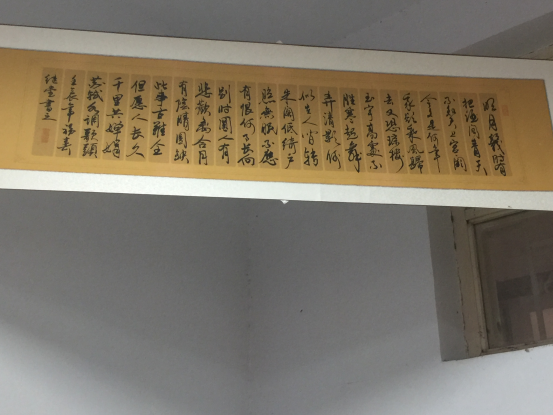 明月幾時有
把酒問青天
不知天上宮闕
今夕是何年
我欲乘風歸
去又恐瓊樓
玉宇高處不
勝寒起舞
弄清影何
似在人間轉
朱閣低綺戶
照無眠不應
有恨何事長向
別時圓人有
悲歡離合月
有陰晴圓缺
此事古難全
但愿人長久
千里共嬋娟
蘇軾水調歌頭
壬辰年
書之